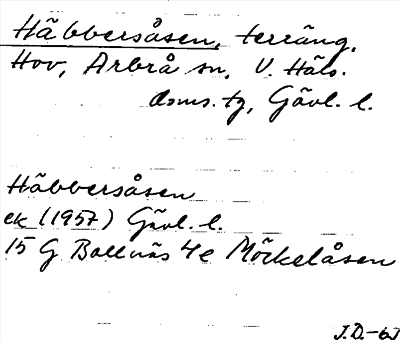 Häbbersåsen, terräng,
Hov, Arbrå sn, V. Häls.
doms. tg, Gävl. l.
Häbbersåsen
ek (1957) Gävl. l.
15 G Bollnäs 4e Möckelåsen
J.D.-63